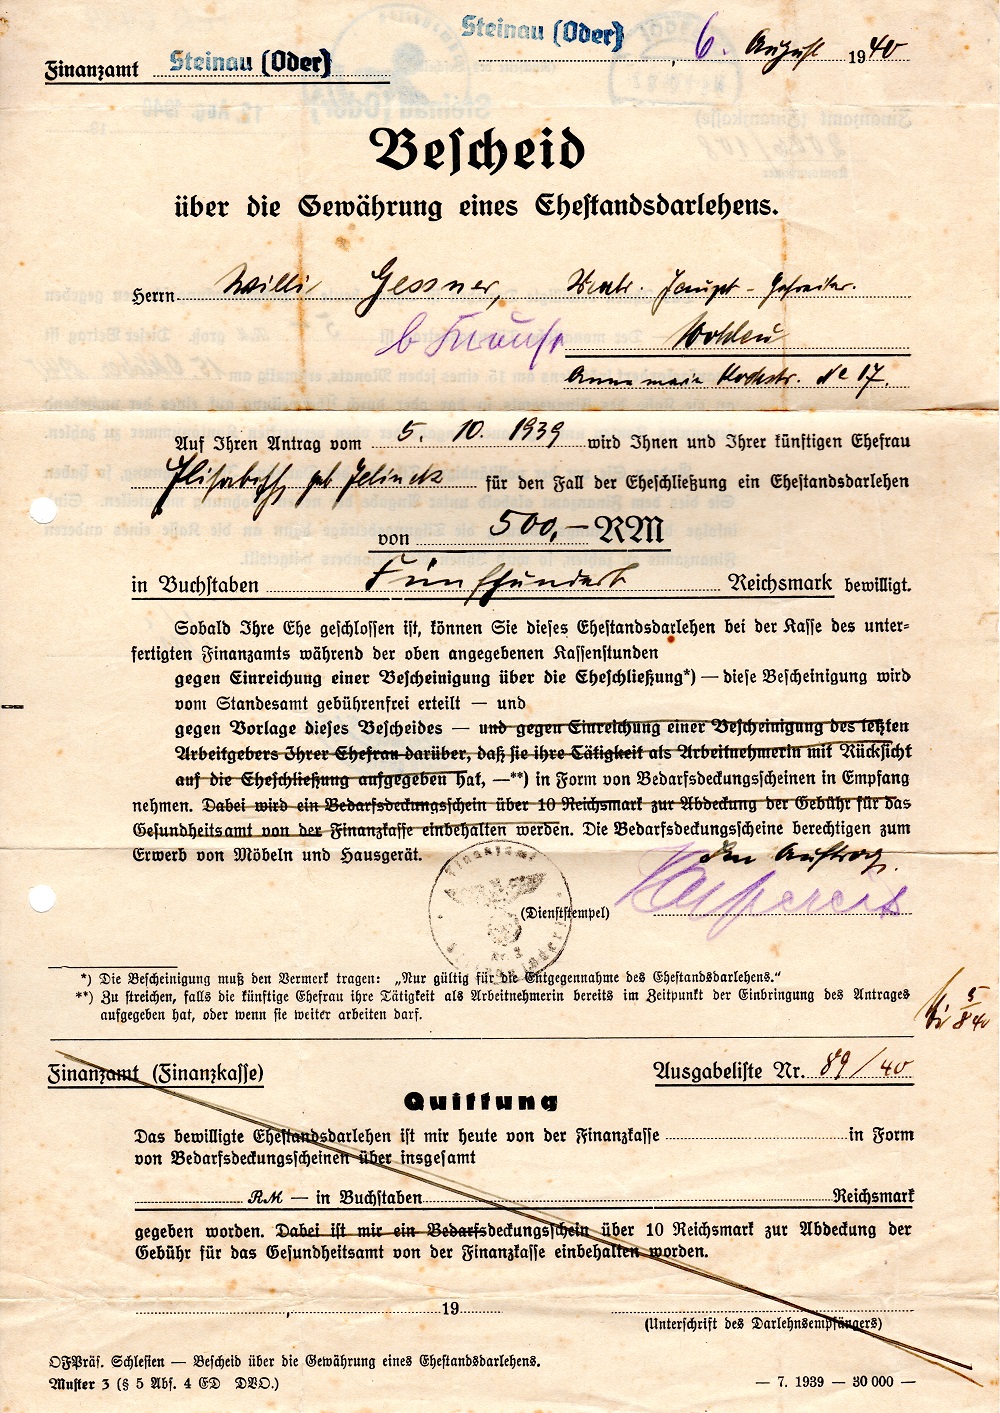 Steinau (Oder), 6. August 1940
Finanzamt Steinau (Oder)
Bescheid
über die Gewährung eines Ehestandsdarlehens.
Herrn Willi Gessner,
Wohlau
Annemarie Kochstr. No 17.
Auf Ihren Antrag vom 5. 10. 1939 wird Ihnen und Ihrer künftigen Ehefrau
Elisabeth geb Jelinek für den Fall der Eheschließung ein Ehestandsdarlehen
von 500,- RM
in Buchstaben Fünfhundert Reichsmark bewilligt.
Sobald Ihre Ehe geschlossen ist, können Sie dieses Ehestandsdarlehen bei der Kasse des unter-
fertigten Finanzamts während der oben angegebenen Kassenstunden
gegen Einreichung einer Bescheinigung über die Eheschließung*) — diese Bescheinigung wird
vom Standesamt gebührenfrei erteilt — und
gegen Vorlage dieses Bescheides — und gegen Einreichung einer Bescheinigung des letzten
Arbeitgebers Ihrer Ehefrau darüber, daß sie ihre Tätigkeit als Arbeitnehmerin mit Rücksicht
auf die Eheschließung aufgegeben hat, —**) in Form von Bedarfsdeckungsscheinen in Empfang
nehmen. Dabei wird ein Bedarfsdeckungsschein über 10 Reichsmark zur Abdeckung der Gebühr für das
Gesundheitsamt von der Finanzkasse einbehalten werden. Die Bedarfsdeckungsscheine berechtigen zum
Erwerb von Möbeln und Hausgerät.
Im Auftrag.
Finanzamt
Nr. 2
(Dienststempel)
*) Die Bescheinigung muß den Vermerk tragen: „Nur gültig für die Entgegennahme des Ehestandsdarlehens."
**) Zu streichen, falls die künftige Ehefrau ihre Tätigkeit als Arbeitnehmerin bereits im Zeitpunkt der Einbringung des Antrages
aufgegeben hat, oder wenn sie weiter arbeiten darf.
5/8 40
Finanzamt (Finanzkasse)
Ausgabeliste Nr. 89/40
Quittung
Das bewilligte Ehestandsdarlehen ist mir heute von der Finanzkasse in Form
von Bedarfsdeckungsscheinen über insgesamt
RM — in Buchstaben Reichsmark
gegeben worden. Dabei ist mir ein Bedarfsdeckungsschein über 10 Reichsmark zur Abdeckung der
Gebühr für das Gesundheitsamt von der Finanzkasse einbehalten worden.
, 19
(Unterschrift des Darlehnsempfängers)
OFPräs. Schlesien — Bescheid über die Gewährung eines Ehestandsdarlehens.
Muster 3 (§ 5 Abs. 4 ED DVO.)
— 7. 1939 — 30 000 —